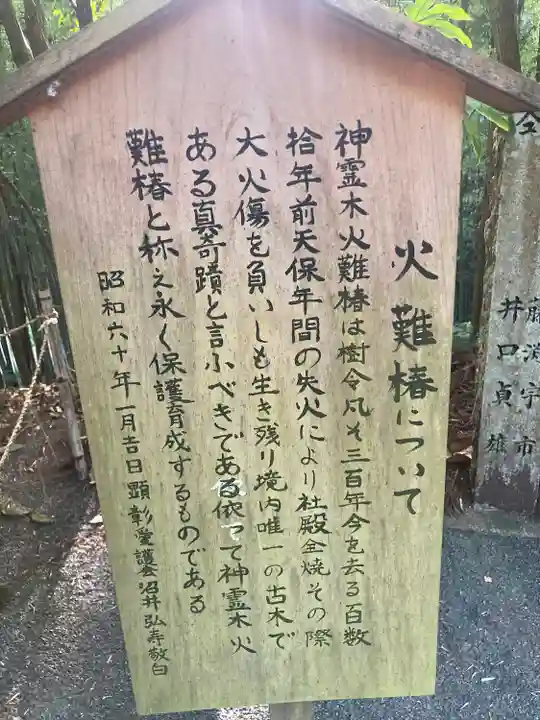 火難椿について
神霊木火難椿は樹令凡そ三百年今を去る百数
拾年前天保年間の失火により社殿全焼その際
大火傷を負いしも生き残り境内唯一の古木で
ある真奇蹟と言ふべきである依って神霊木火
難椿と称え永く保護育成するものである
昭和六十年一月吉日 顕彰愛護会 沼井弘寿敬白
井口貞雄